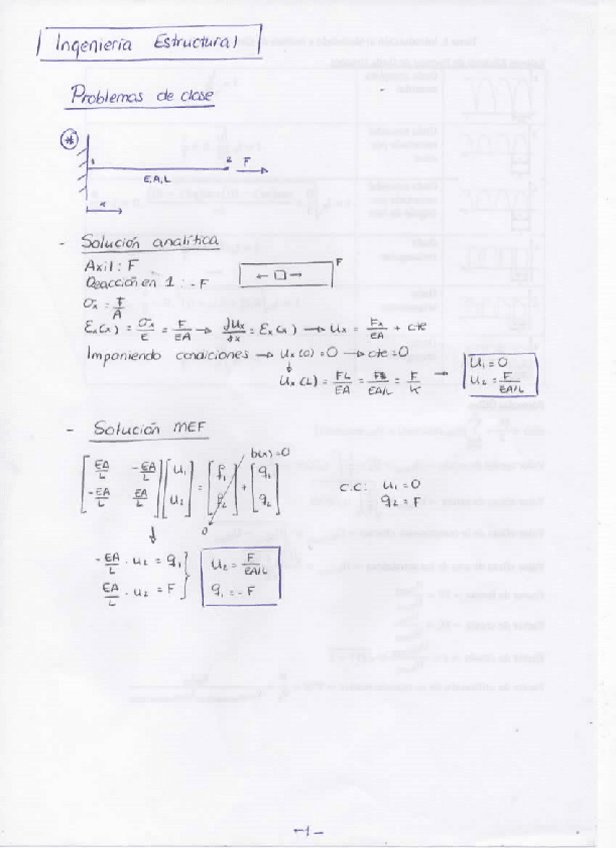 Ingeniería Estructural
Problemas de clase
*
1 2 F
E, A, L
x
- Solución analítica
Axil: F
Reacción en 1: -F
F
σx = F/A
Ex(x) = σx/E = F/EA → dux/dx = Ex(x) → ux = Fx/EA + cte
Imponiendo condiciones → ux(0) = 0 → cte = 0
ux(L) = FL/EA = F/EA/L = F/K → u1 = 0
u2 = F/EA/L
- Solución MEF
b(x) = 0
[EA/L -EA/L] [u1] = [f1] + [q1] c.c: u1 = 0
[-EA/L EA/L] [u2] [f2] [q2] q2 = F
0
-EA/L · u2 = q1 u2 = F/EA/L
EA/L · u2 = F q1 = -F
-1-